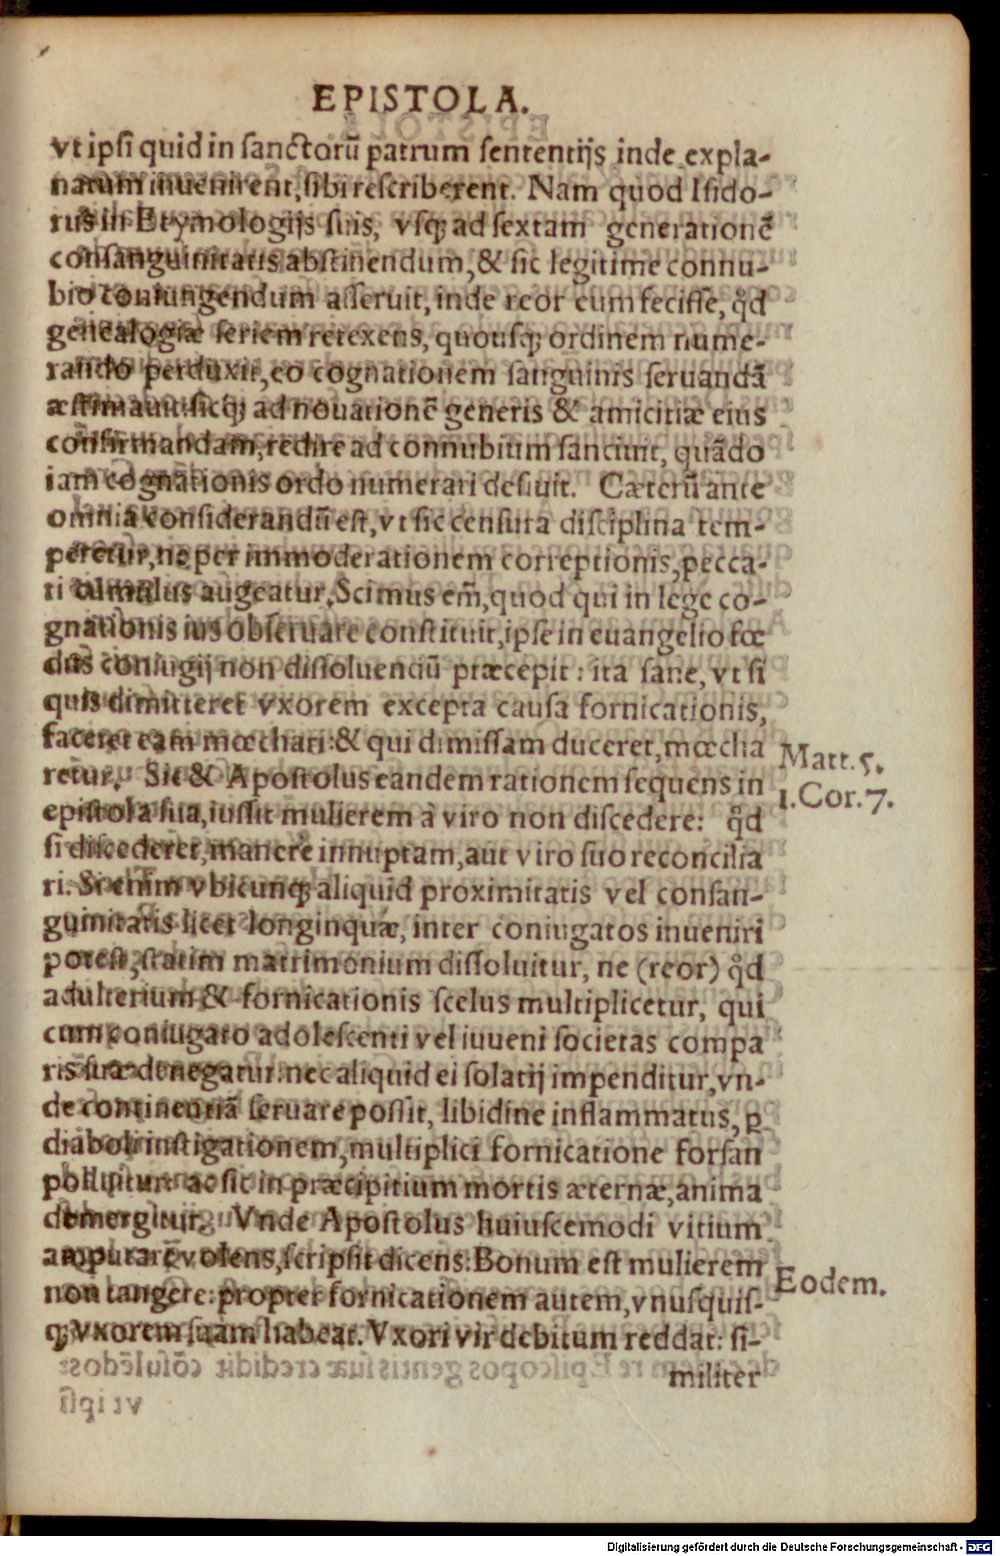 EPISTOLA.
vt ipsi quid in sanctorū patrum sententijs inde expla-
natum inuenirent, sibi rescriberent. Nam quod Isido-
rus in Etymologijs suis, vsq; ad sextam generationē
consanguinitatis abstinendum, & sic legitime connu-
bio coniungendum asseruit, inde reor eum fecisse, q̊d
genealogiæ seriem retexens, quousq; ordinem nume-
rando perduxit, eo cognationem sanguinis seruandā
æstimauit: sicq; ad nouationē generis & amicitiæ eius
confirmandam, redire ad connubium sanciuit, quādo
iam cognationis ordo numerari desiuit. Cæterū ante
omnia considerandū est, vt sic censura disciplina tem-
peretur, ne per immoderationem correptionis, pecca-
ti cumulus augeatur. Scimus em̄, quod qui in lege co-
gnationis ius obseruare constituit, ipse in euangelio fœ
dus coniugij non dissoluendū præcepit: ita sane, vt si
quis dimitteret vxorem excepta causa fornicationis,
faceret eam mœchari: & qui dimissam duceret, mœcha
retur. Sic & Apostolus eandem rationem sequens in
Matt. 5.
epistola sua, iussit mulierem à viro non discedere: q̊d
1. Cor. 7.
si discederet, manere innuptam, aut viro suo reconcilia
ri. Si enim vbicunq; aliquid proximitatis vel consan-
guinitatis licet longinquæ, inter coniugatos inueniri
potest, statim matrimonium dissoluitur, ne (reor) q̊d
adulterium & fornicationis scelus multiplicetur, qui
cum coniugato adolescenti vel iuueni societas compa
ris suæ denegatur: nec aliquid ei solatij impenditur, vn-
de continentiā seruare possit, libidine inflammatus, ꝑ
diaboli instigationem, multiplici fornicatione forsan
polluitur: ac sic in præcipitium mortis æternæ, anima
demergitur. Vnde Apostolus huiuscemodi vitium
amputare volens, scripsit dicens: Bonum est mulierem
Eodem.
non tangere: propter fornicationem autem, vnusquis-
q; vxorem suam habeat. Vxori vir debitum reddat: si-
militer
Digitalisierung gefördert durch die Deutsche Forschungsgemeinschaft - DFG